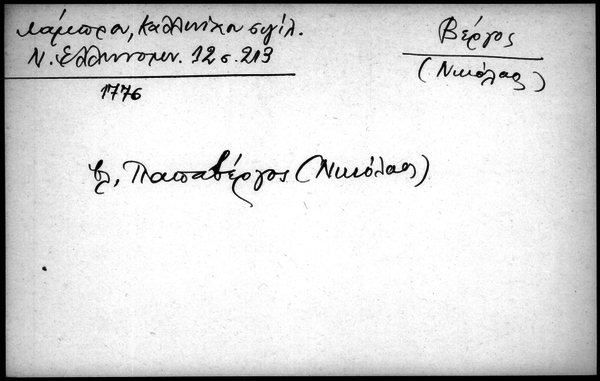 Λάμπρου, Καλλινίκου σιγίλ.
Ν. Ελληνομν. 12 σ. 213
1776
Βέργος
(Νικόλαος)
βλ. Παπαβέργος (Νικόλαος)